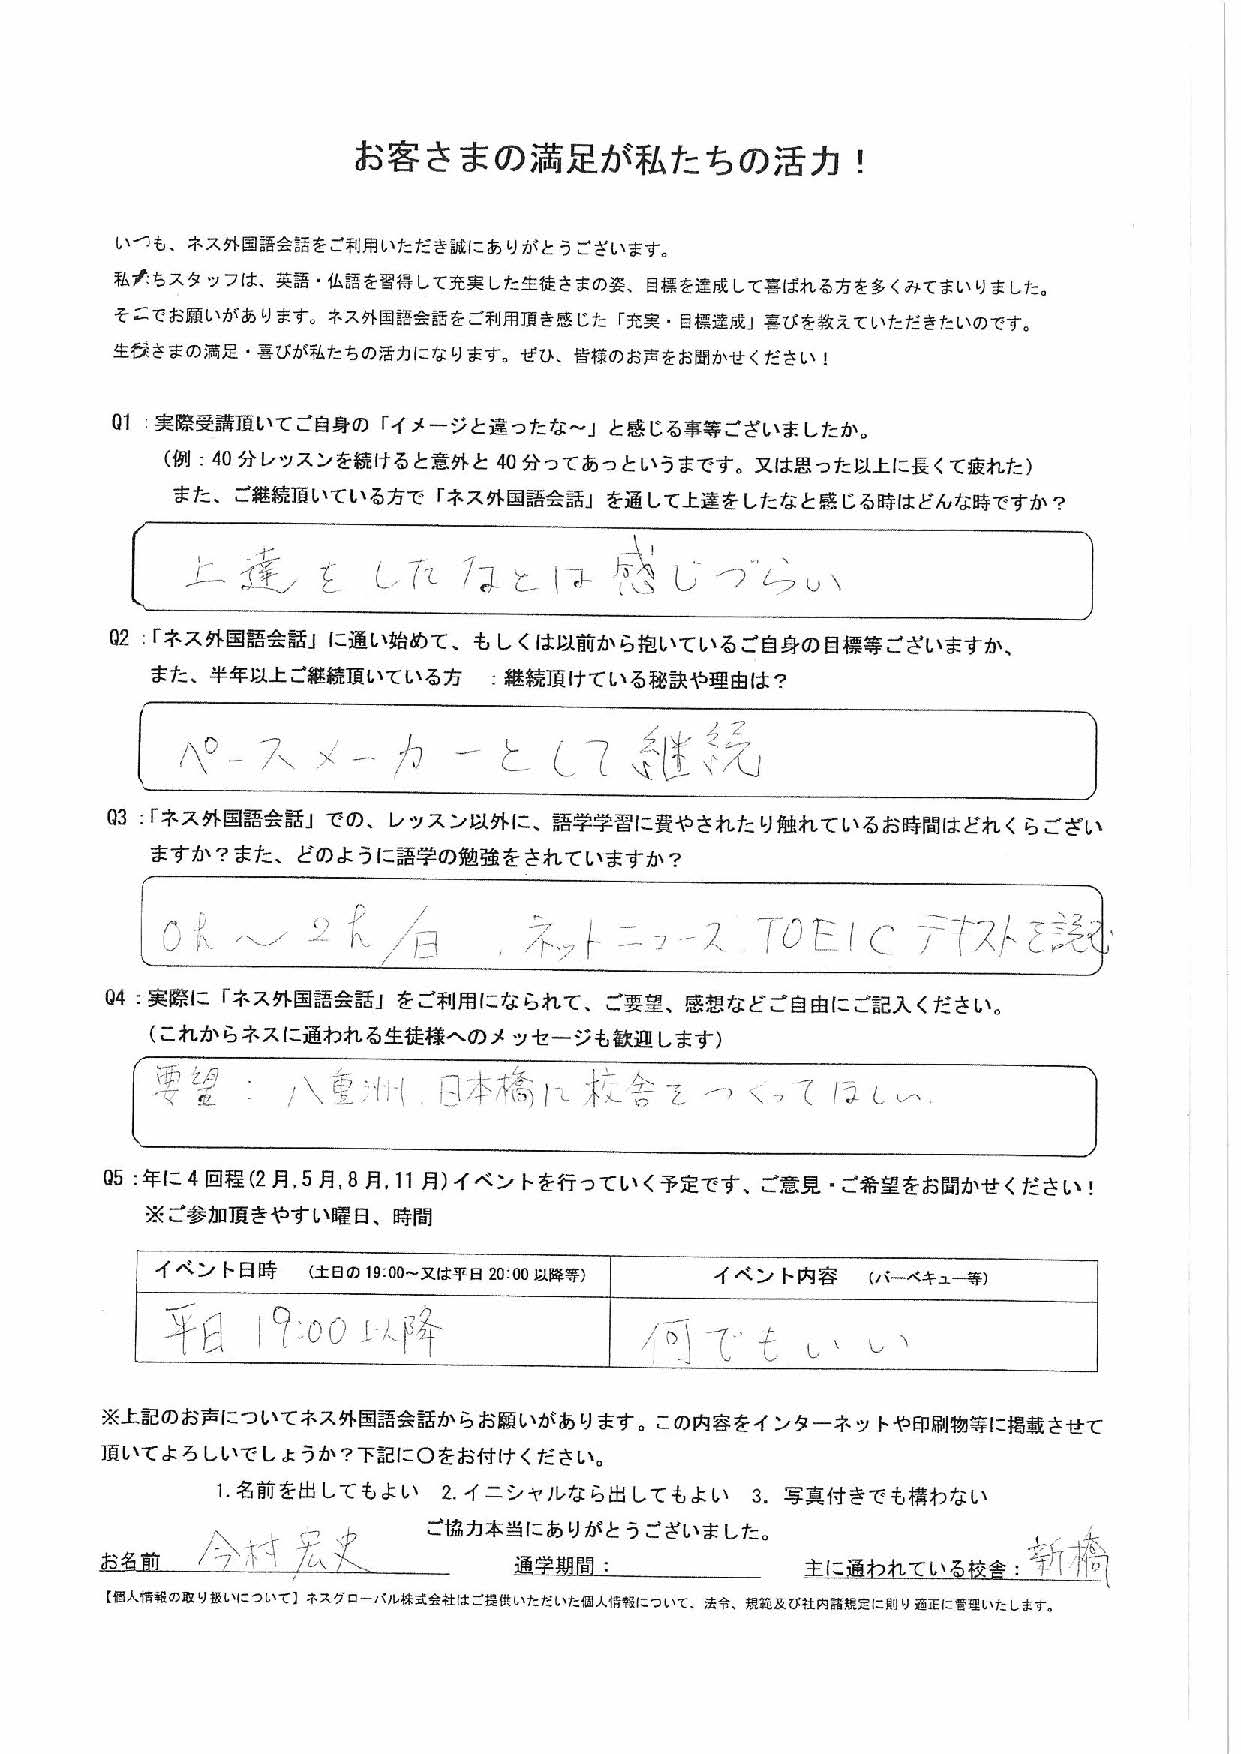 お客さまの満足が私たちの活力！
いつも、ネス外国語会話をご利用いただき誠にありがとうございます。
私たちスタッフは、英語・仏語を習得して充実した生徒さまの姿、目標を達成して喜ばれる方を多くみてまいりました。
そこでお願いがあります。ネス外国語会話をご利用頂き感じた「充実・目標達成」喜びを教えていただきたいのです。
生徒さまの満足・喜びが私たちの活力になります。ぜひ、皆様のお声をお聞かせください！
Q1：実際受講頂いてご自身の「イメージと違ったな～」と感じる事等ございましたか。
（例：40分レッスンを続けると意外と40分ってあっというまです。又は思った以上に長くて疲れた）
また、ご継続頂いている方で「ネス外国語会話」を通して上達をしたなと感じる時はどんな時ですか？
上達をしたなとは感じづらい
Q2：「ネス外国語会話」に通い始めて、もしくは以前から抱いているご自身の目標等ございますか、
また、半年以上ご継続頂いている方　：継続頂けている秘訣や理由は？
ペースメーカーとして継続
Q3：「ネス外国語会話」での、レッスン以外に、語学学習に費やされたり触れているお時間はどれくらござい
ますか？また、どのように語学の勉強をされていますか？
0h～2h/日、ネットニュース、TOEICテキストを読む
Q4：実際に「ネス外国語会話」をご利用になられて、ご要望、感想などご自由にご記入ください。
（これからネスに通われる生徒様へのメッセージも歓迎します）
要望：八重洲、日本橋に校舎をつくってほしい。
Q5：年に4回程(2月,5月,8月,11月)イベントを行っていく予定です、ご意見・ご希望をお聞かせください！
※ご参加頂きやすい曜日、時間
イベント日時　（土日の19:00～又は平日20:00以降等）　イベント内容　（バーベキュー等）
平日19:00以降　何でもいい
※上記のお声についてネス外国語会話からお願いがあります。この内容をインターネットや印刷物等に掲載させて
頂いてよろしいでしょうか？下記に〇をお付けください。
1.名前を出してもよい　2.イニシャルなら出してもよい　3．写真付きでも構わない
ご協力本当にありがとうございました。
お名前　今村宏史　通学期間：　主に通われている校舎：新橋
【個人情報の取り扱いについて】ネスグローバル株式会社はご提供いただいた個人情報について、法令、規範及び社内諸規定に則り適正に管理いたします。